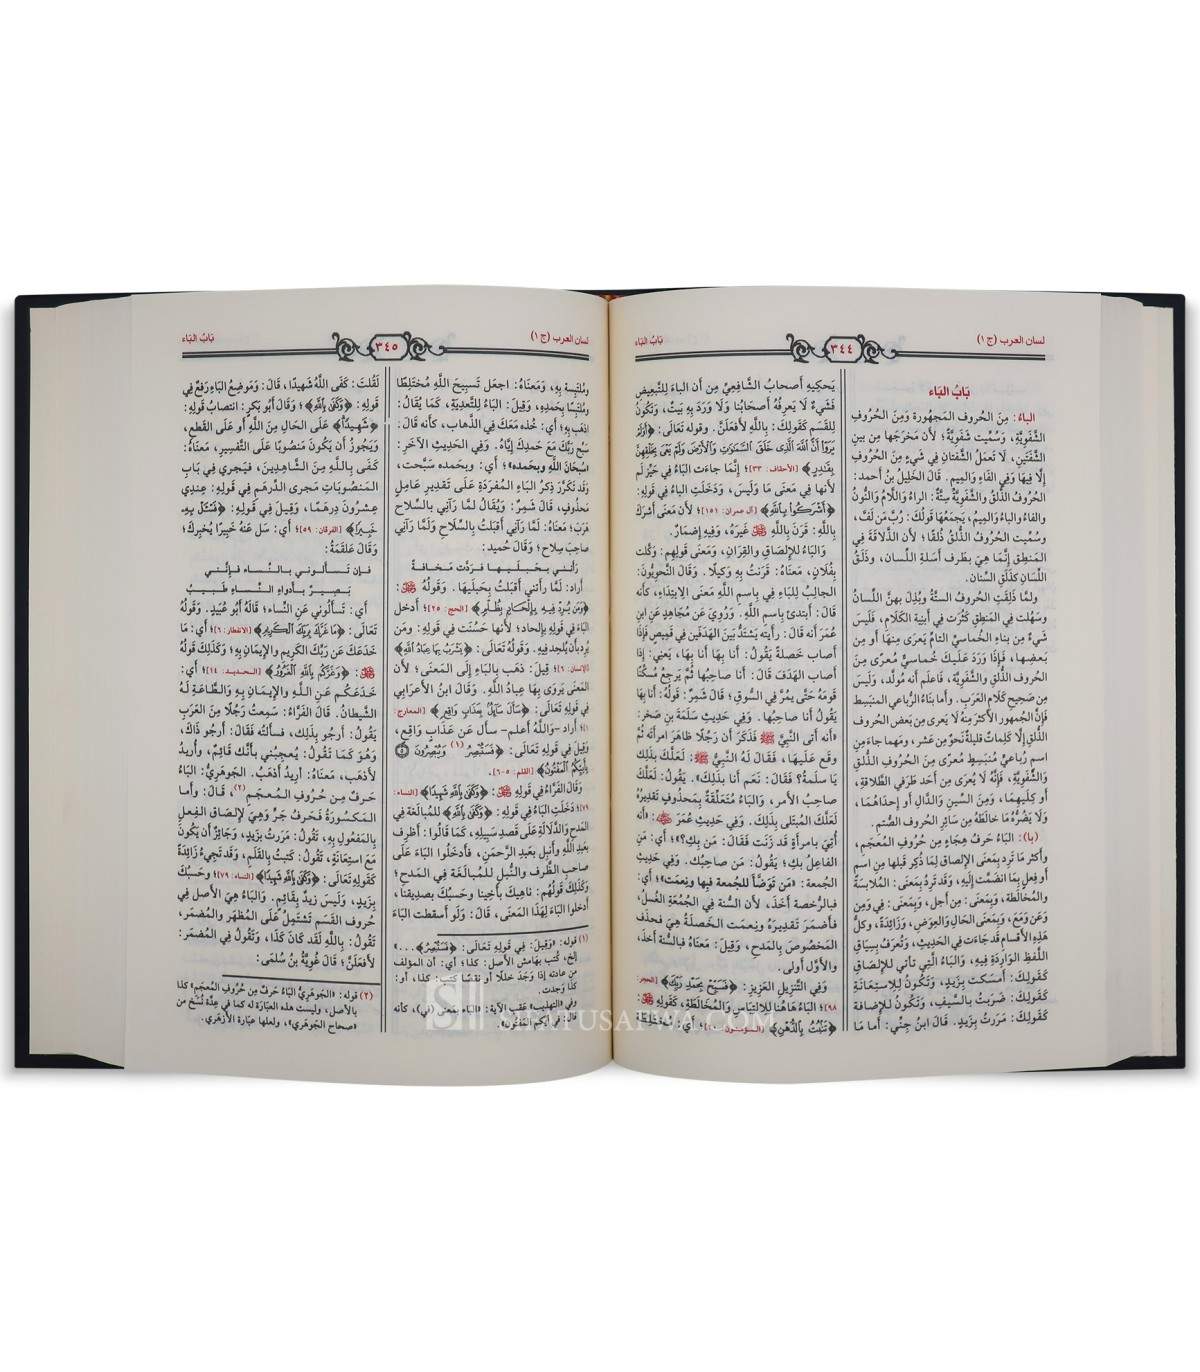 لسان العرب (ج ١)
٣٤٤
بَابُ البَاء
بَابُ البَاء
الباءُ: مِنَ الحُروف المَجهورة وَمِنَ الحُرُوفِ
الشَّفَوِيَّةِ، وَسُمِّيت شَفَوِيَّةً؛ لأَن مَخرَجَها مِن بينِ
الشَّفَتَينِ، لَا تَعمَلُ الشَّفَتانِ فِي شَيءٍ مِنَ الحُرُوفِ
إِلَّا فِيهَا وَفِي الفَاءِ وَالمِيم. قَالَ الخَلِيلُ بنُ أَحمد:
الحُرُوفُ الذُّلقُ والشَّفَوِيَّةُ سِتَّةٌ: الراءُ وَاللَّامُ وَالنُّونُ
والفاءُ والباءُ والمِيمُ، يَجمَعُهَا قَولُكَ: رُبَّ مَن لَفَّ،
وسُمِّيت الحُرُوفُ الذُّلقُ ذُلقًا؛ لأَن الذَّلاقة فِي
المَنطِق إِنَّمَا هِيَ بطَرف أَسَلةِ اللِّسان، وذَلَقُ
اللِّسَانِ كذَلَقِ السِّنان.
ولمَّا ذَلِقَتِ الحُروفُ الستَّةُ وبُذِلَ بهِنَّ اللِّسانُ
وسَهُلت فِي المَنطِقِ كَثُرَت فِي أَبنِية الكَلَامِ، فَلَيسَ
شَيءٌ مِن بناءِ الخُماسيِّ التامِّ يَعرَى مِنهَا أَو مِن
بَعضِها، فَإِذَا وَرَدَ عَلَيكَ خُماسيٌّ مُعرًى مِنَ
الحُروف الذُّلقِ والشَّفَوِيَّة، فَاعلَم أَنه مُولَّد، وَلَيسَ
مِن صَحِيحِ كَلَامِ العَرَبِ. وأَما بناءُ الرُّباعي المنبَسِط
فَإِنَّ الجُمهور الأَكثرَ مِنهُ لَا يَعرى مِن بَعض الحُروف
الذُّلقِ إِلَّا كَلِماتٌ قَليلةٌ نَحوٌ مِن عَشر، ومَهما جاءَ مِن
اسمٍ رُباعيٍّ مُنبَسِطٍ مُعرًى مِنَ الحُرُوفِ الذُّلقِ
والشَّفَوِيَّةِ، فَإِنَّهُ لَا يُعرَى مِن أَحَد طَرَفي الطَّلاقةِ،
أَو كِلَيهِما، وَمِنَ السِّينِ وَالدَّالِ أَو إِحداهُما،
وَلَا يَضُرُّهُ مَا خالَطَهُ مِن سَائِرِ الحُروف الصُّتم.
(با): البَاءُ حَرفُ هِجاءٍ مِن حُرُوفُ المُعجَم،
وأَكثر مَا تَرِد بِمَعنَى الإِلصاق لِمَا ذُكِر قَبلَها مِنِ اسمٍ
أَو فِعلٍ بِمَا انضَمَّت إِلَيهِ، وَقَد تَرِدُ بِمَعنَى: المُلابسة
والمُخالَطة، وَبِمَعنَى: مِن أَجل، وَبِمَعنَى: فِي وَمِن
وَعَن وَمَعَ، وَبِمَعنَى الحَالِ وَالعِوَضِ، وَزَائِدَةً، وكلُّ
هَذِهِ الأَقسامِ قَد جَاءَت فِي الحَدِيثِ، وتُعرَفُ بِسِيَاقِ
اللَّفظِ الوَارِدَةِ فِيهِ، وَالبَاءُ الَّتِي تأتي للإِلصاقِ
كَقَولِكَ: أَمسَكت بِزَيدٍ، وَتَكُونُ لِلِاستِعَانَةِ
كَقَولِكَ: ضَرَبتُ بالسَّيف، وَتَكُونُ للإِضافة
كَقَولِكَ: مَرَرتُ بِزَيدٍ. قَالَ ابنُ جِنِّي: أَما مَا
يَحكيِهِ أَصحابُ الشَّافِعِيِّ مِن أَن الباءَ لِلتَّبعِيضِ
فَشَيءٌ لَا يَعرِفُهُ أَصحابُنا وَلَا وَرَدَ بِهِ بَيتٌ، وَتَكُونُ
لِلقَسَمِ كَقَولِكَ: بِاللَّهِ لأَفعَلَنَّ. وقوله تَعَالَى: ﴿أَوَلَمْ
يَرَوْا أَنَّ اللَّهَ الَّذِي خَلَقَ السَّمَوَاتِ وَالْأَرْضَ وَلَمْ يَعْيَ بِخَلْقِهِنَّ
بِقَادِرٍ﴾ [الأحقاف: ٣٣]؛ إِنَّمَا جاءَت الباءُ فِي حَيِّز لَم
لأَنها فِي مَعنَى مَا وَلَيسَ، وَدَخَلَتِ الباءُ فِي قَولِهِ:
﴿أَشْرَكُوا بِاللَّهِ﴾ [آل عمران: ١٥١]؛ لأَن مَعنَى أَشرَكَ
بِاللَّهِ: قَرَنَ بِاللَّهِ ﷻ غَيرَهُ، وَفِيهِ إِضمارٌ.
وَالبَاءُ للإِلصاق والقِرانِ، وَمَعنَى قَولِهِم: وَكَّلت
بِفُلَانٍ، مَعنَاهُ: قَرَنتُ بِهِ وَكيلًا. وَقَالَ النَّحوِيُّونَ:
الجالِبُ لِلبَاءِ فِي بِاسمِ اللَّهِ مَعنَى الِابتِدَاءِ، كأَنه
قَالَ: أَبتدئ بِاسمِ اللَّهِ. وَرُوِيَ عَن مُجَاهِدٍ عَنِ ابنِ
عُمَرَ أَنه قَالَ: رأَيته يَشتَدُّ بَينَ الهَدَفَين فِي قَمِيصٍ فإِذا
أَصاب خَصلةً يَقُولُ: أَنا بِهَا أَنا بِهَا، يَعني: إِذا
أَصاب الهَدَفَ قَالَ: أَنا صاحِبُها ثُمَّ يَرجِع مُسكِّنًا
قَومَهُ حَتَّى يمُرَّ فِي السُّوقِ؛ قَالَ شَمِرٌ: قَولُهُ: أَنا بِهَا
يَقُولُ أَنا صاحِبُها. وَفِي حَدِيثِ سَلَمَةَ بنِ صَخر:
«أَنه أَتى النَّبِيَّ ﷺ فَذَكَرَ أَن رَجُلًا ظاهَرَ امرأَتَه ثُمَّ
وقَع عَلَيهَا، فَقَالَ لَهُ النَّبِيُّ ﷺ: لَعَلَّكَ بذَلِك
يَا سلَمةُ؟ فَقَالَ: نَعَم أَنا بذَلِكَ». يَقُولُ: لَعَلَّكَ
صاحِبُ الأَمر، وَالبَاءُ مُتَعَلِّقَةٌ بِمَحذُوفٍ تَقدِيرُهُ
لَعَلَّكَ المُبتَلى بِذَلِكَ. وَفِي حَدِيثِ عُمَرَ: «أَنه
أُتِيَ بامرأَةٍ قَد زَنَت فَقَالَ: مَن بِكِ؟»؛ أَي: مَنِ
الفاعِلُ بكِ؛ يَقُولُ: مَن صاحِبُك. وَفِي حَدِيثِ
الجُمعة: «مَن تَوَضَّأَ للجُمعة فبِها ونِعمَت»؛ أَي:
فبالرُّخصة أَخَذَ، لأَن السنة فِي الجُمُعَةِ الغُسلُ،
فأَضمَرَ تَقدِيرَهُ ونِعمَت الخَصلَةُ هِيَ فَحذَف
المَخصُوصَ بِالمَدحِ، وَقِيلَ: مَعنَاهُ فبالسنة أَخذ،
والأَوَّل أَولى.
وَفِي التَّنزِيلِ العَزِيزِ: ﴿فَسَبِّحْ بِحَمْدِ رَبِّكَ﴾ [الحجر:
٩٨]؛ البَاءُ هَاهُنَا لِلِالتِبَاسِ وَالمُخَالَطَةِ، كَقَولِهِ ﷻ:
﴿تَنْبُتُ بِالدُّهْنِ﴾ [المؤمنون: ٢٠]؛ أَي: مُختَلِطَةً
لسان العرب (ج ١)
٣٤٥
بَابُ البَاء
ومُلتَبِسة بِهِ، وَمَعنَاهُ: اجعَل تَسبِيحَ اللَّهِ مُختَلِطًا
ومُلتَبِسًا بِحَمدِهِ، وَقِيلَ: البَاءُ لِلتَّعدِيَةِ، كَمَا يُقَالُ:
اذهَب بِهِ؛ أَي: خُذه مَعَكَ فِي الذَّهاب، كأَنه قَالَ:
سَبِّح رَبَّكَ مَعَ حَمدِكَ إِيَّاهُ. وَفِي الحَدِيثِ الآخَرِ:
«سُبحَانَ اللَّهِ وبحَمده»؛ أَي: وبحَمده سَبَّحت،
وَقَد تَكَرَّرَ ذِكرُ البَاءِ المُفرَدَةِ عَلَى تَقدِيرِ عَامِلٍ
مَحذُوفٍ. قَالَ شَمِرٌ: وَيُقَالُ لمَّا رَآنِي بالسِّلاح
هَرَب؛ مَعنَاهُ: لَمَّا رَآنِي أَقبَلتُ بِالسِّلَاحِ ولَمَّا رَآنِي
صاحِبَ سِلاح؛ وَقَالَ حُميد:
رَأَتني بِحَبلَيها فرَدَّت مَخافةً
أَراد: لَمَّا رأَتني أَقبَلتُ بحَبلَيها. وَقَولُهُ ﷻ:
﴿وَمَن يُرِدْ فِيهِ بِإِلْحَادٍ بِظُلْمٍ﴾ [الحج: ٢٥]؛ أَدخل
البَاءَ فِي قَولِهِ بإِلحاد؛ لأَنها حَسُنَت فِي قَولِهِ: ومَن
يُرِد بأَن يُلحِد فِيهِ. وَقَولُهُ تَعَالَى: ﴿يَشْرَبُ بِهَا عِبَادُ اللَّهِ﴾
[الإنسان: ٦]؛ قِيلَ: ذهَب بِالبَاءِ إِلى المَعنَى؛ لأَن
المَعنَى يَروَى بِهَا عِبادُ اللَّهِ. وَقَالَ ابنُ الأَعرابي
فِي قَولِهِ تَعَالَى: ﴿سَأَلَ سَائِلٌ بِعَذَابٍ وَاقِعٍ﴾ [المعارج:
١]؛ أَراد -وَاللَّهُ أعلم- سأَل عَن عَذَابٍ وَاقِعٍ،
وَقِيلَ فِي قَولِهِ تَعَالَى: ﴿فَسَتُبْصِرُ (١) وَيُبْصِرُونَ
بِأَيْيِكُمُ الْمَفْتُونُ﴾ [القلم: ٥-٦].
وَقَالَ الفَرَّاءُ فِي قَولِهِ ﷻ: ﴿وَكَفَى بِاللَّهِ شَهِيدًا﴾ [النساء:
٧٩]؛ دَخَلَتِ البَاءُ فِي قَولِهِ: ﴿وَكَفَى بِاللَّهِ﴾ للمُبالَغة فِي
المَدحِ وَالدَّلَالَةِ عَلَى قَصدِ سَبِيلِهِ، كَمَا قَالُوا: أَظرِف
بعَبدِ اللَّهِ وأَنبِل بعَبدِ الرَّحمَنِ، فأَدخَلُوا البَاءَ عَلَى
صاحبِ الظَّرف والنُّبل للمُبالَغة فِي المَدحِ؛
وَكَذَلِكَ قَولُهُم: ناهِيكَ بأَخِينا وحَسبُكَ بصَدِيقنا،
أَدخلوا البَاءَ لِهَذَا المَعنَى، قَالَ: وَلَو أَسقطت البَاءَ
(١) قوله: «وَقِيلَ: فِي قَولِهِ تَعَالَى: ﴿فَسَتُبْصِرُ﴾...»
إلخ، كُتب بهامش الأصل: كذا؛ أي: أن المؤلف
من عادته إذا وَجَدَ خللًا أو نقصًا كتب: كذا، أو:
كذا وَجدت.
وفي «التهذيب» عقب الآية: «الباء بمعنى (في)، كأنه
قال: في أيكم المَفتُون».
لَقُلتَ: كَفَى اللَّهُ شَهِيدًا، قَالَ: وَمَوضِعُ البَاءِ رَفعٌ فِي
قَولِهِ: ﴿وَكَفَى بِاللَّهِ﴾؛ وَقَالَ أَبُو بَكرٍ: انتصابُ قَولِهِ:
﴿شَهِيدًا﴾ عَلَى الحَالِ مِنَ اللَّهِ أَو عَلَى القَطعِ،
وَيَجُوزُ أَن يَكُونَ مَنصُوبًا عَلَى التَّفسِيرِ، مَعنَاهُ:
كَفَى بِاللَّهِ مِنَ الشَّاهِدِينَ، فيَجري فِي بَابِ
المَنصُوبَاتِ مَجرى الدِّرهَم فِي قَولِهِ: عِندِي
عِشرُونَ دِرهَمًا، وَقِيلَ فِي قَولِهِ: ﴿فَسْئَلْ بِهِ
خَبِيرًا﴾ [الفرقان: ٥٩]؛ أَي: سَل عَنهُ خَبِيرًا يُخبِركَ؛
وَقَالَ عَلقَمَةُ:
فإن تَسأَلوني بالنِّساء فإنَّني
بَصِيرٌ بأَدواءِ النِّساءِ طَبِيبُ
أَي: تَسأَلُوني عَنِ النِّساء؛ قَالَهُ أَبو عُبَيدٍ. وَقَولُهُ
تَعَالَى: ﴿مَا غَرَّكَ بِرَبِّكَ الْكَرِيمِ﴾ [الانفطار: ٦]؛ أَي: مَا
خدَعكَ عَن رَبِّكَ الكَرِيمِ والإِيمانِ بِهِ؛ وَكَذَلِكَ قَولُهُ
ﷻ: ﴿وَغَرَّكُمْ بِاللَّهِ الْغَرُورُ﴾ [الحديد: ١٤]؛ أَي:
خَدَعَكُم عَنِ اللَّهِ والإِيمان بِهِ وَالطَّاعَةِ لَهُ
الشَّيطَانُ. قَالَ الفَرَّاءُ: سَمِعتُ رَجُلًا مِنَ العَرَبِ
يَقُولُ: أَرجو بذَلِك، فسأَلتُه فَقَالَ: أَرجو ذَاكَ،
وَهُوَ كَمَا تَقُولُ: يُعجِبُني بأَنَّك قَائِمٌ، وأُريدُ
لأَذهَب، مَعنَاهُ: أُريد أَذهَبُ. الجَوهَرِيُّ: البَاءُ
حَرفٌ مِن حُرُوفِ المُعجَم (٢)، قَالَ: وأَما
المَكسُورَةُ فَحَرفُ جَرٍّ وَهِيَ لإِلصاق الفِعلِ
بِالمَفعُولِ بِهِ، تَقُولُ: مَرَرتُ بِزَيدٍ، وَجَائِزٌ أَن يَكُونَ
مَعَ استِعَانَةٍ، تَقُولُ: كَتَبتُ بِالقَلَمِ، وَقَد تَجِيءُ زَائِدَةً
كَقَولِهِ تَعَالَى: ﴿وَكَفَى بِاللَّهِ شَهِيدًا﴾ [النساء: ٧٩]؛ وحَسبُكَ
بِزَيدٍ، وَلَيسَ زيدٌ بِقَائِمٍ. وَالبَاءُ هِيَ الأَصل فِي
حُرُوف القَسَم تَشتَمِلُ عَلَى المُظهَر والمُضمَر،
تَقُولُ: بِاللَّهِ لَقَد كَانَ كَذَا، وَتَقُولُ فِي المُضمَر:
لأَفعَلَنَّ؛ قَالَ غُوَيَّةُ بنُ سُلمَى:
(٢) قوله: «الجَوهَرِيُّ البَاءُ حَرفٌ مِن حُرُوفِ المُعجَم» كذا
بالأصل، وليست هذه العبارَة له كما في عِدَّة نُسَخ من
«صحاح الجَوهَرِي»، ولعلها عبارَة الأزهَري.
SIFATUSAFWA.COM